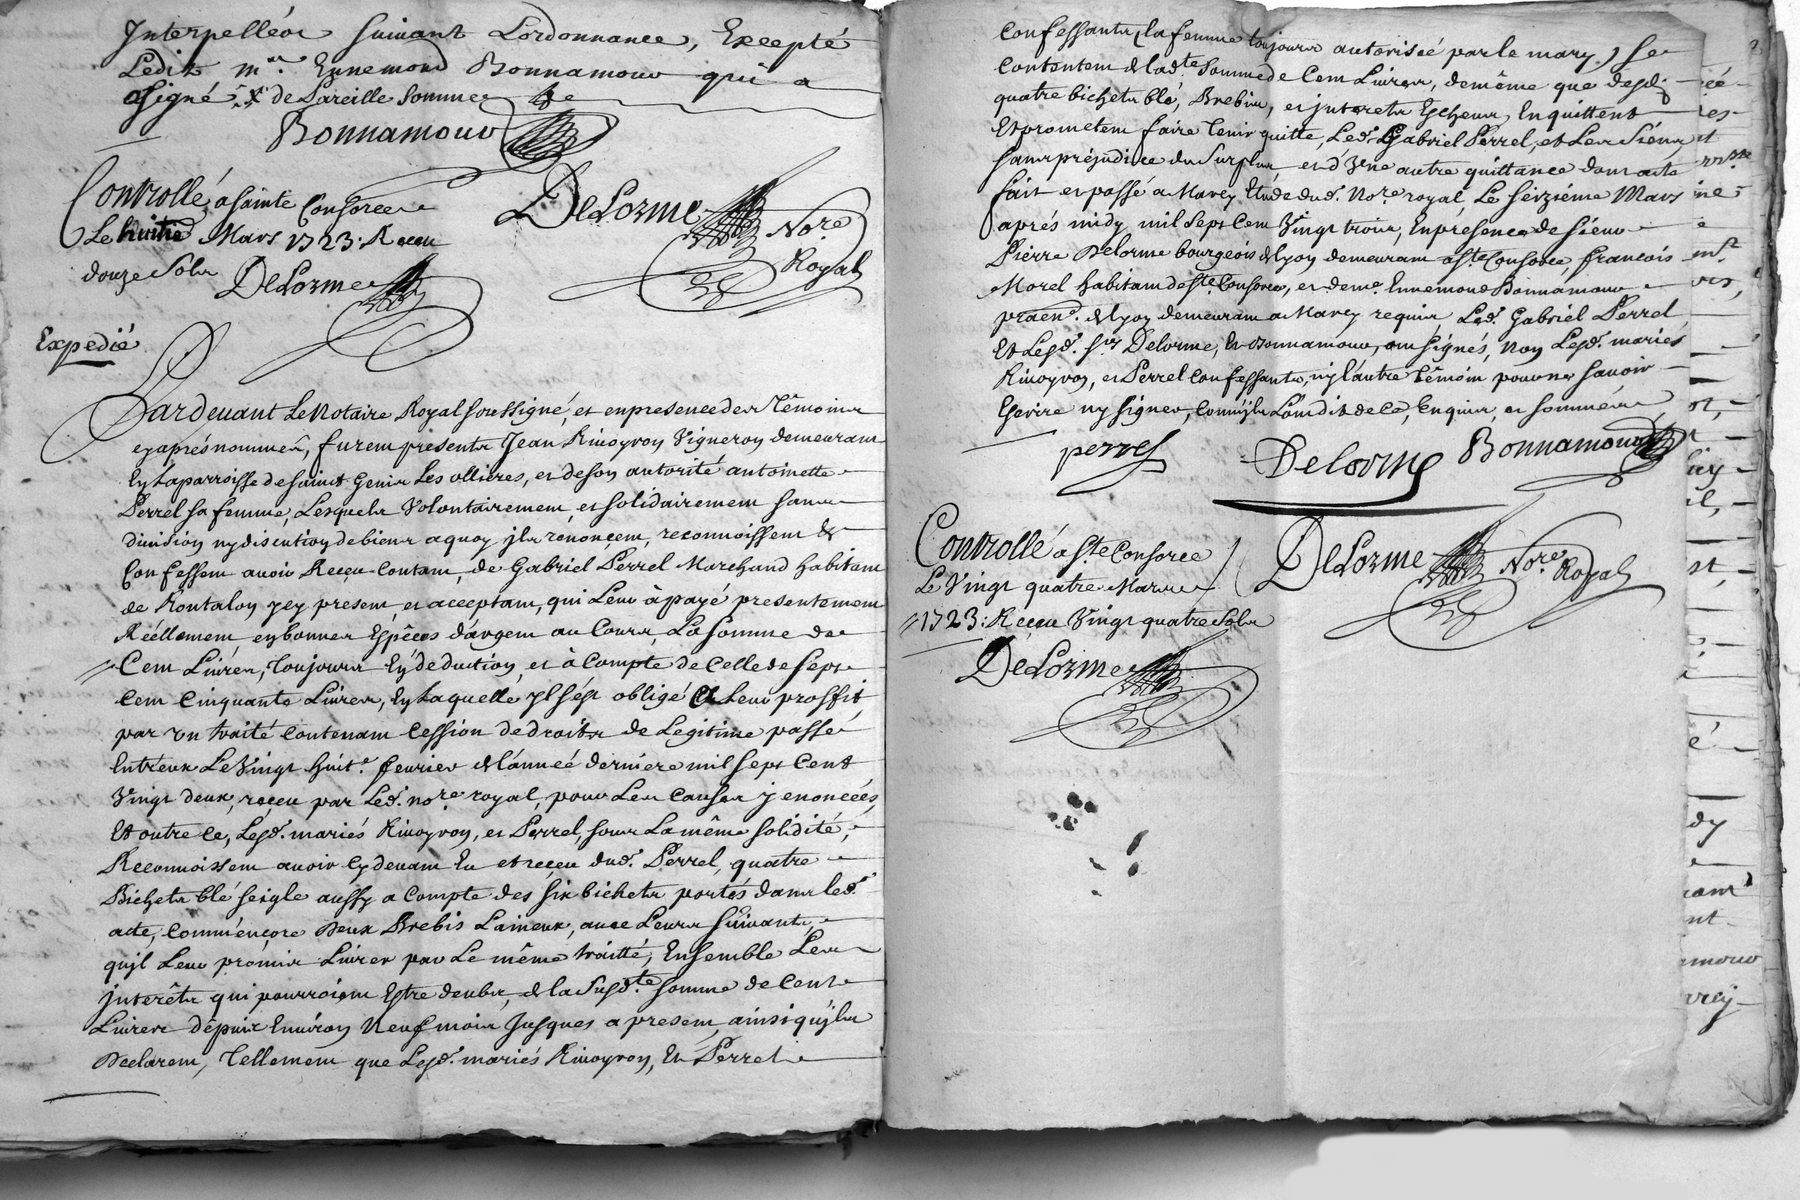 Interpelléz suivant Lordonnance, Excepté
Ledit mre. Ennemond Bonnamour qui a
signé x de Pareille Somme
Bonnamour
Controllé a Sainte Consorce
Le huitre Mars 1723: Receu
douze Sols DeLorme
DeLorme
Nore.
Royal
Expedié
Pardeuant Le Notaire Royal soussigné, et enpresence des Témoins
cyaprésnommés, furent presents Jean Riuoyron Vigneron demeurant
En Laparroisse desainct Genis Les ollieres, et deson autorité antoinette
Perrel sa fémme, Lesquels Volontairement, et solidairement sans
diuision ny discution debiens aquoy jls renonçent, reconnoissent &
Confessent auoir Reçeu Contant, de Gabriel Perrel Marchand habitant
de Pontalon ycy present, et acceptant, qui Leur à payé presentement
Réëllement en bonnes Espéces d'argent au Cours, La Somme de
Cent Liures, Toujours En deduction, et à Compte de Celle de Sept
Cent Cinquante Liures, En Laquelle jl s'ést obligé a Leur proffit
par vn traité Contenant Cession de droits de Legitime passé
Entréux Le Vingt huite. feurier de l'anneé derniere mil sept Cent
Vingt deux, reçeu par Led. nore royal, pour Les Causes y enonceés,
Et outre ce, Lesd. mariés Riuoyron, et Perrel, sous La même solidité,
Reconnoissent auoir Cy deuant Eu et reçeu dud. Perrel, quatre
Bichets blé seigle aussy a Compte des six bichets portés dans led.
acte, Comm'ençore Deux Brebis Laineux, auec Leurs suiuants,
qujl Leur promis Liurer par Le même traitté, Ensemble Les
jnterêts qui pourroient Estre deubs, de la Susdte. somme de Cent
Liures dépuis Enuiron Neuf mois Jusques a present, ainsi qu'jls
Declarent, Tellement que Lesd. mariés Riuoyron, Et Perrel
Confessants (la femme toujours autorisée par le mary) se
Contentent de lad.te Somme de Cent Liures, demême que desd.
quatre bichets blé, Brebis, et jnterets Escheus, En quittent
Et prometent faire Tenir quitte, Led. Gabriel Perrel, et Les Siens
sans préjudice du Surplus et d'Vne autre quittance dont acte
fait et passé a Marcy Etude dud. Nore. royal, Le seiziéme Mars
aprés midy mil Sept Cent Vingt trois, Enpresence de Sieur
Pierre Delorme bourgeois de Lyon demeurant a ste. Consorce, francois
Morel habitant de ste. Consorce, et deme. Ennemond Bonnamour
praen. de Lyon demeurant a Marcy requis Led. Gabriel Perrel
Et Lesd. srs Delorme, Et Bonnamour, ont signés, Non Lesd. mariés
Riuoyron, et Perrel Confessants, ny l'autre témoin pour ne sauoir
Escrire ny signer, Comm'jls L'ont dit de ce, Enquis, et sommés
perrel
Delorme
Bonnamour
Controllé a Ste Consorce
Le Vingt quatre Mars
1723: Receu Vingt quatre Sols
DeLorme
DeLorme
Nore.
Royal